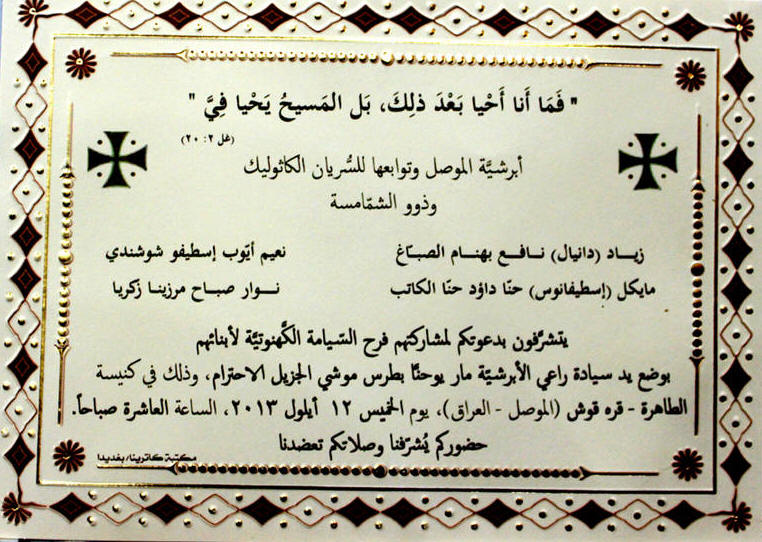 " فَمَا أَنا أَحْيا بَعْدَ ذلِكَ، بَل المَسيحُ يَحْيا فِيَّ "
(غل ٢: ٢٠)
أبرشيَّة الموصل وتوابعها للسُّريان الكاثوليك
وذوو الشمّامسة
زيـاد (دانيال) نـافـع بهنـام الصبـّاغ
نعيم أيّوب إسطيفو شوشندي
مايكل (إسطيفانوس) حنّا داؤد حنّا الكاتب
نـوار صباح مرزينا زكريا
يتشرَّفون بدعوتكم لمشاركتهم فرح السّيامة الكَّهنوتيَّة لأبنائهم
بوضع يد سيادة راعي الأبرشيّة مار يوحنّا بطرس موشي الجزيل الاحترام، وذلك في كنيسة
الطاهرة - قره قوش (الموصل - العراق)، يوم الخميس ١٢ أيلول ٢٠١٣، الساعة العاشرة صباحاً.
حضوركم يُشرّفنا وصلاتكم تعضدنا
مكتبة كاترينا/ بغديدا